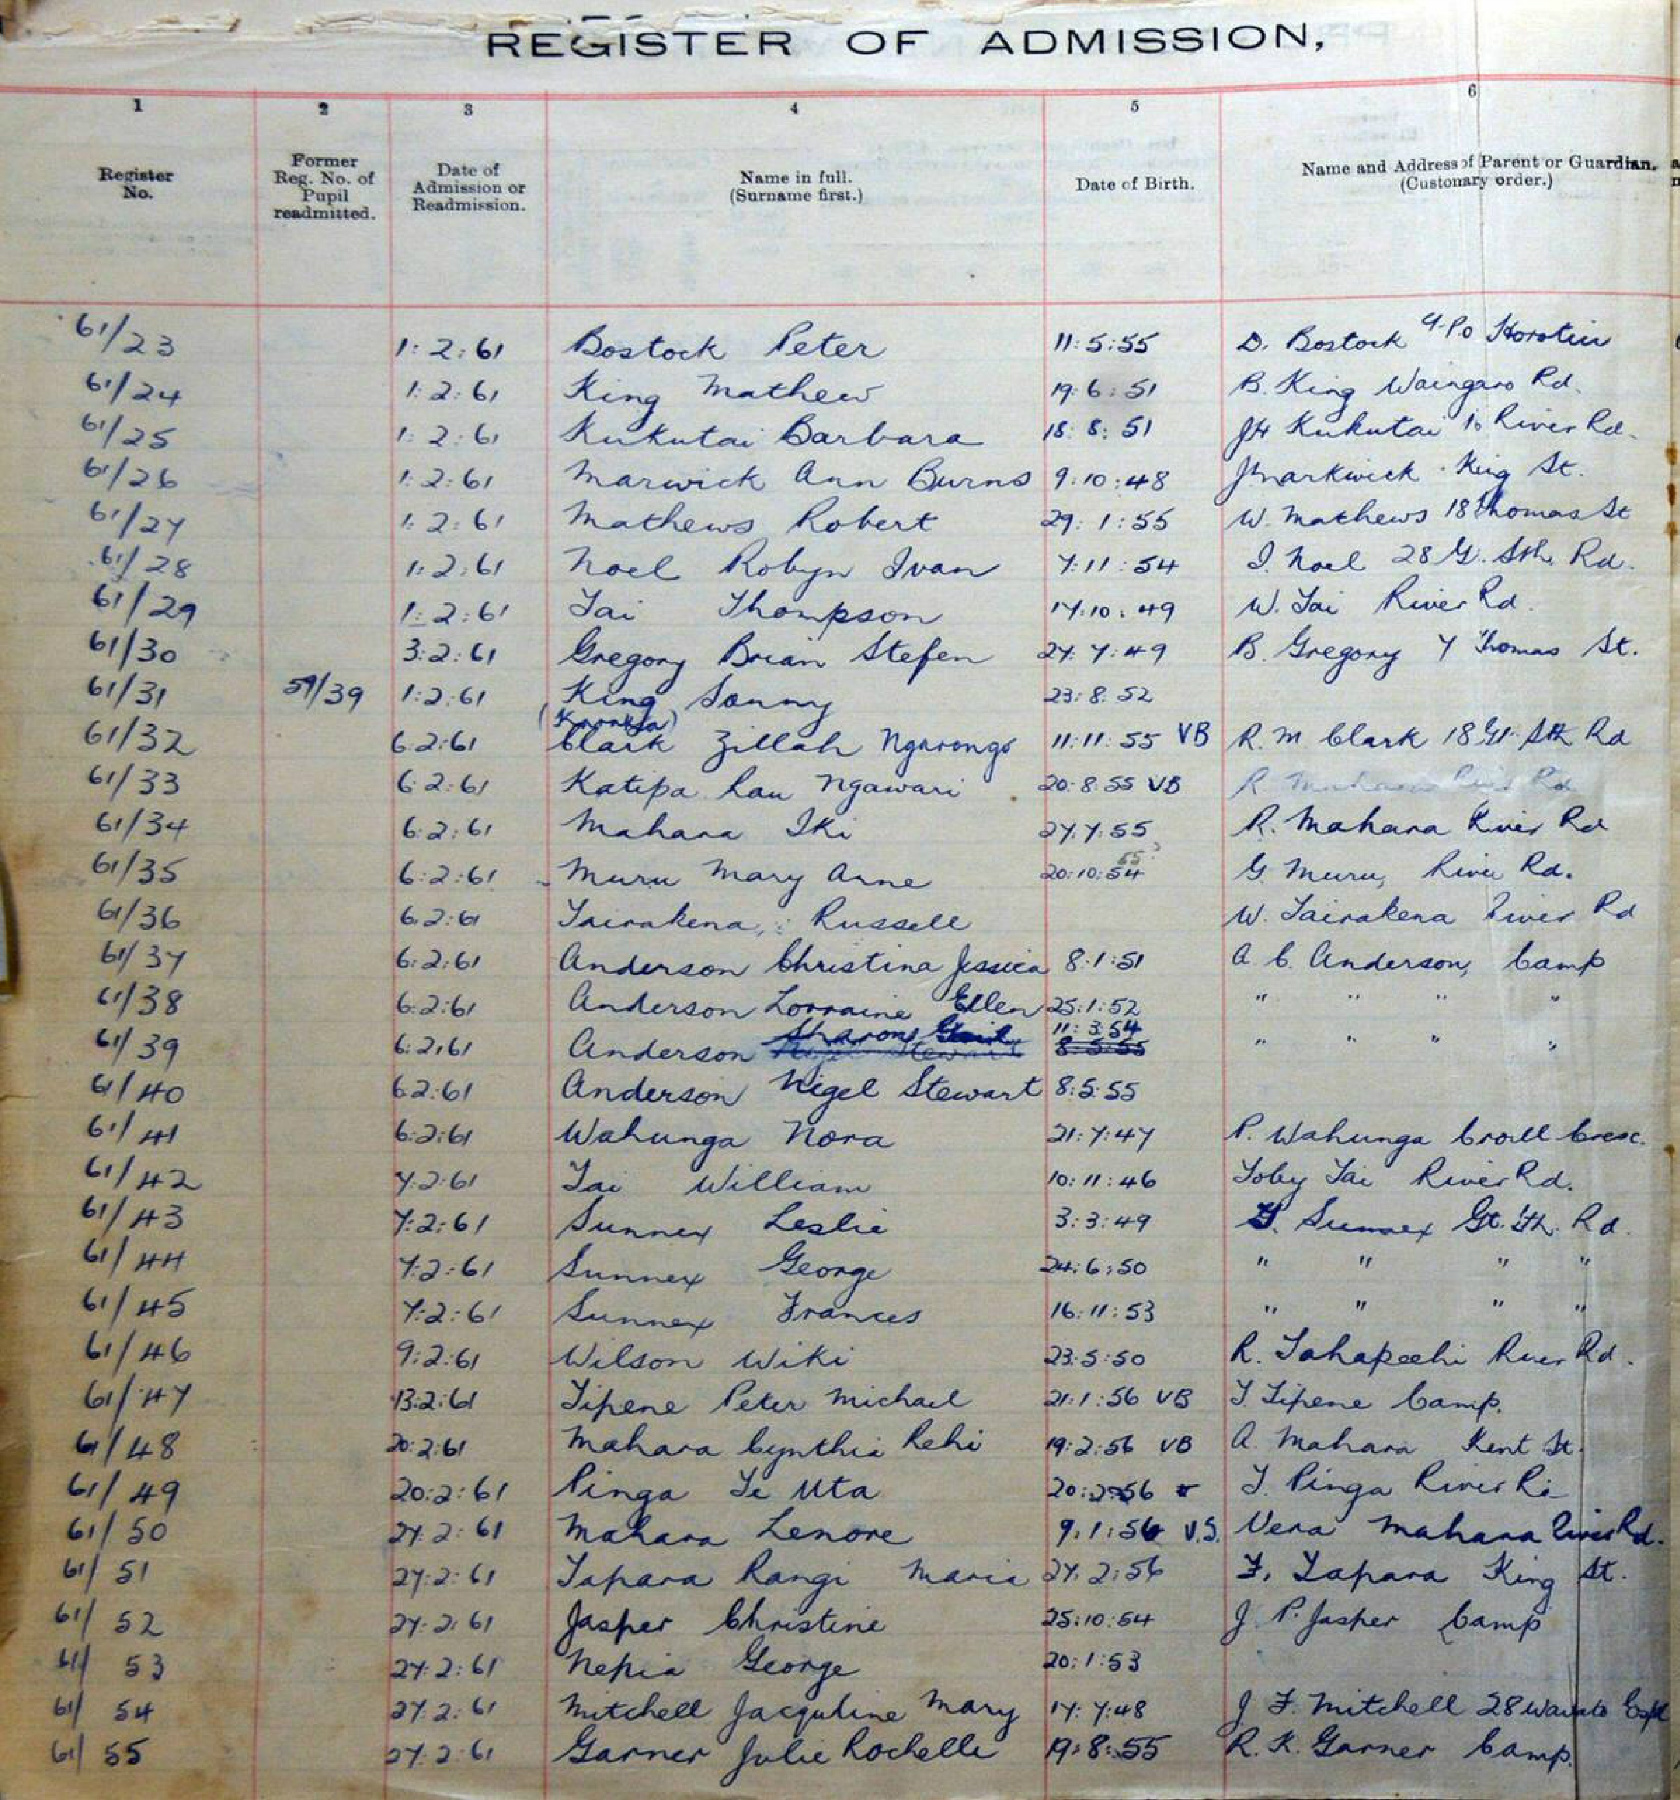 REGISTER OF ADMISSION,
1 2 3 4 5 6
Register No. Former Reg. No. of Pupil readmitted. Date of Admission or Readmission. Name in full. (Surname first.) Date of Birth. Name and Address of Parent or Guardian. (Customary order.)
61/23 1:2:61 Bostock Peter 11:5:55 D. Bostock Horotiu
61/24 1:2:61 King Mathew 19:6:51 B. King Waingaro Rd.
61/25 1:2:61 Kukutai Barbara 18:8:51 Kukutai River Rd.
61/26 1:2:61 Marwick Ann Burns 9:10:48 King St.
61/27 1:2:61 Mathews Robert 29:1:55 W. Mathews 18 Thomas St
61/28 1:2:61 Noel Robyn Ivan 7:11:54 I. Noel 28 Gt. Sth. Rd.
61/29 1:2:61 Tai Thompson 17:10:49 W. Tai River Rd.
61/30 3:2:61 Gregory Brian Stefen 27:7:49 B. Gregory 7 Thomas St.
61/31 59/39 1:2:61 King Sonny 23:8:52
61/32 6:2:61 Clark Zillah Ngarongo 11:11:55 VB R. M Clark 18 Gt. Sth Rd
61/33 6:2:61 Katipa Rau Ngawari 20:8:55 VB R Mahara River Rd
61/34 6:2:61 Mahara Iki 27.7.55 R. Mahara River Rd
55?
61/35 6:2:61 Muru Mary Anne 20:10:54 G. Muru, River Rd.
61/36 6:2:61 Tairakena, Russell W. Tairakena River Rd
61/37 6:2:61 Anderson Christina Jessica 8:1:51 A. C. Anderson, Camp
61/38 6:2:61 Anderson Lorraine Ellen 25:1:52 " " " "
Sharon Gail 11:3:54
61/39 6:2:61 Anderson Nigel Stewart 8:5:55 " " " "
61/40 6:2:61 Anderson Nigel Stewart 8:5:55
61/41 6:2:61 Wahunga Nora 21:7:47 P. Wahunga Croall Cresc.
61/42 7:2:61 Tai William 10:11:46 Toby Tai River Rd.
61/43 7:2:61 Sunnex Leslie 3:3:49 Sunnex Gt. Sth. Rd.
61/44 7:2:61 Sunnex George 24:6:50 " " " "
61/45 7:2:61 Sunnex Frances 16:11:53 " " " "
61/46 9:2:61 Wilson Wiki 23:5:50 R. River Rd.
61/47 13:2:61 Tipene Peter Michael 21:1:56 VB T. Tipene Camp.
61/48 20:2:61 Mahara Cynthia Rehi 19:2:56 VB A. Mahara Kent St.
61/49 20:2:61 Pinga Te Uta 20:2:56 T. Pinga River Rd
61/50 27:2:61 Mahara Lenore 9:1:56 V.S. Vera Mahara River Rd.
61/51 27:2:61 Tapara Rangi Maria 27:2:56 F. Tapara King St.
61/52 27:2:61 Jasper Christine 25:10:54 J. P. Jasper Camp
61/53 27:2:61 Nepia George 20:1:53
61/54 27:2:61 Mitchell Jacquline Mary 17:7:48 J F. Mitchell 28
61/55 27:2:61 Garner Julie Rochelle 19:8:55 R. K. Garner Camp.